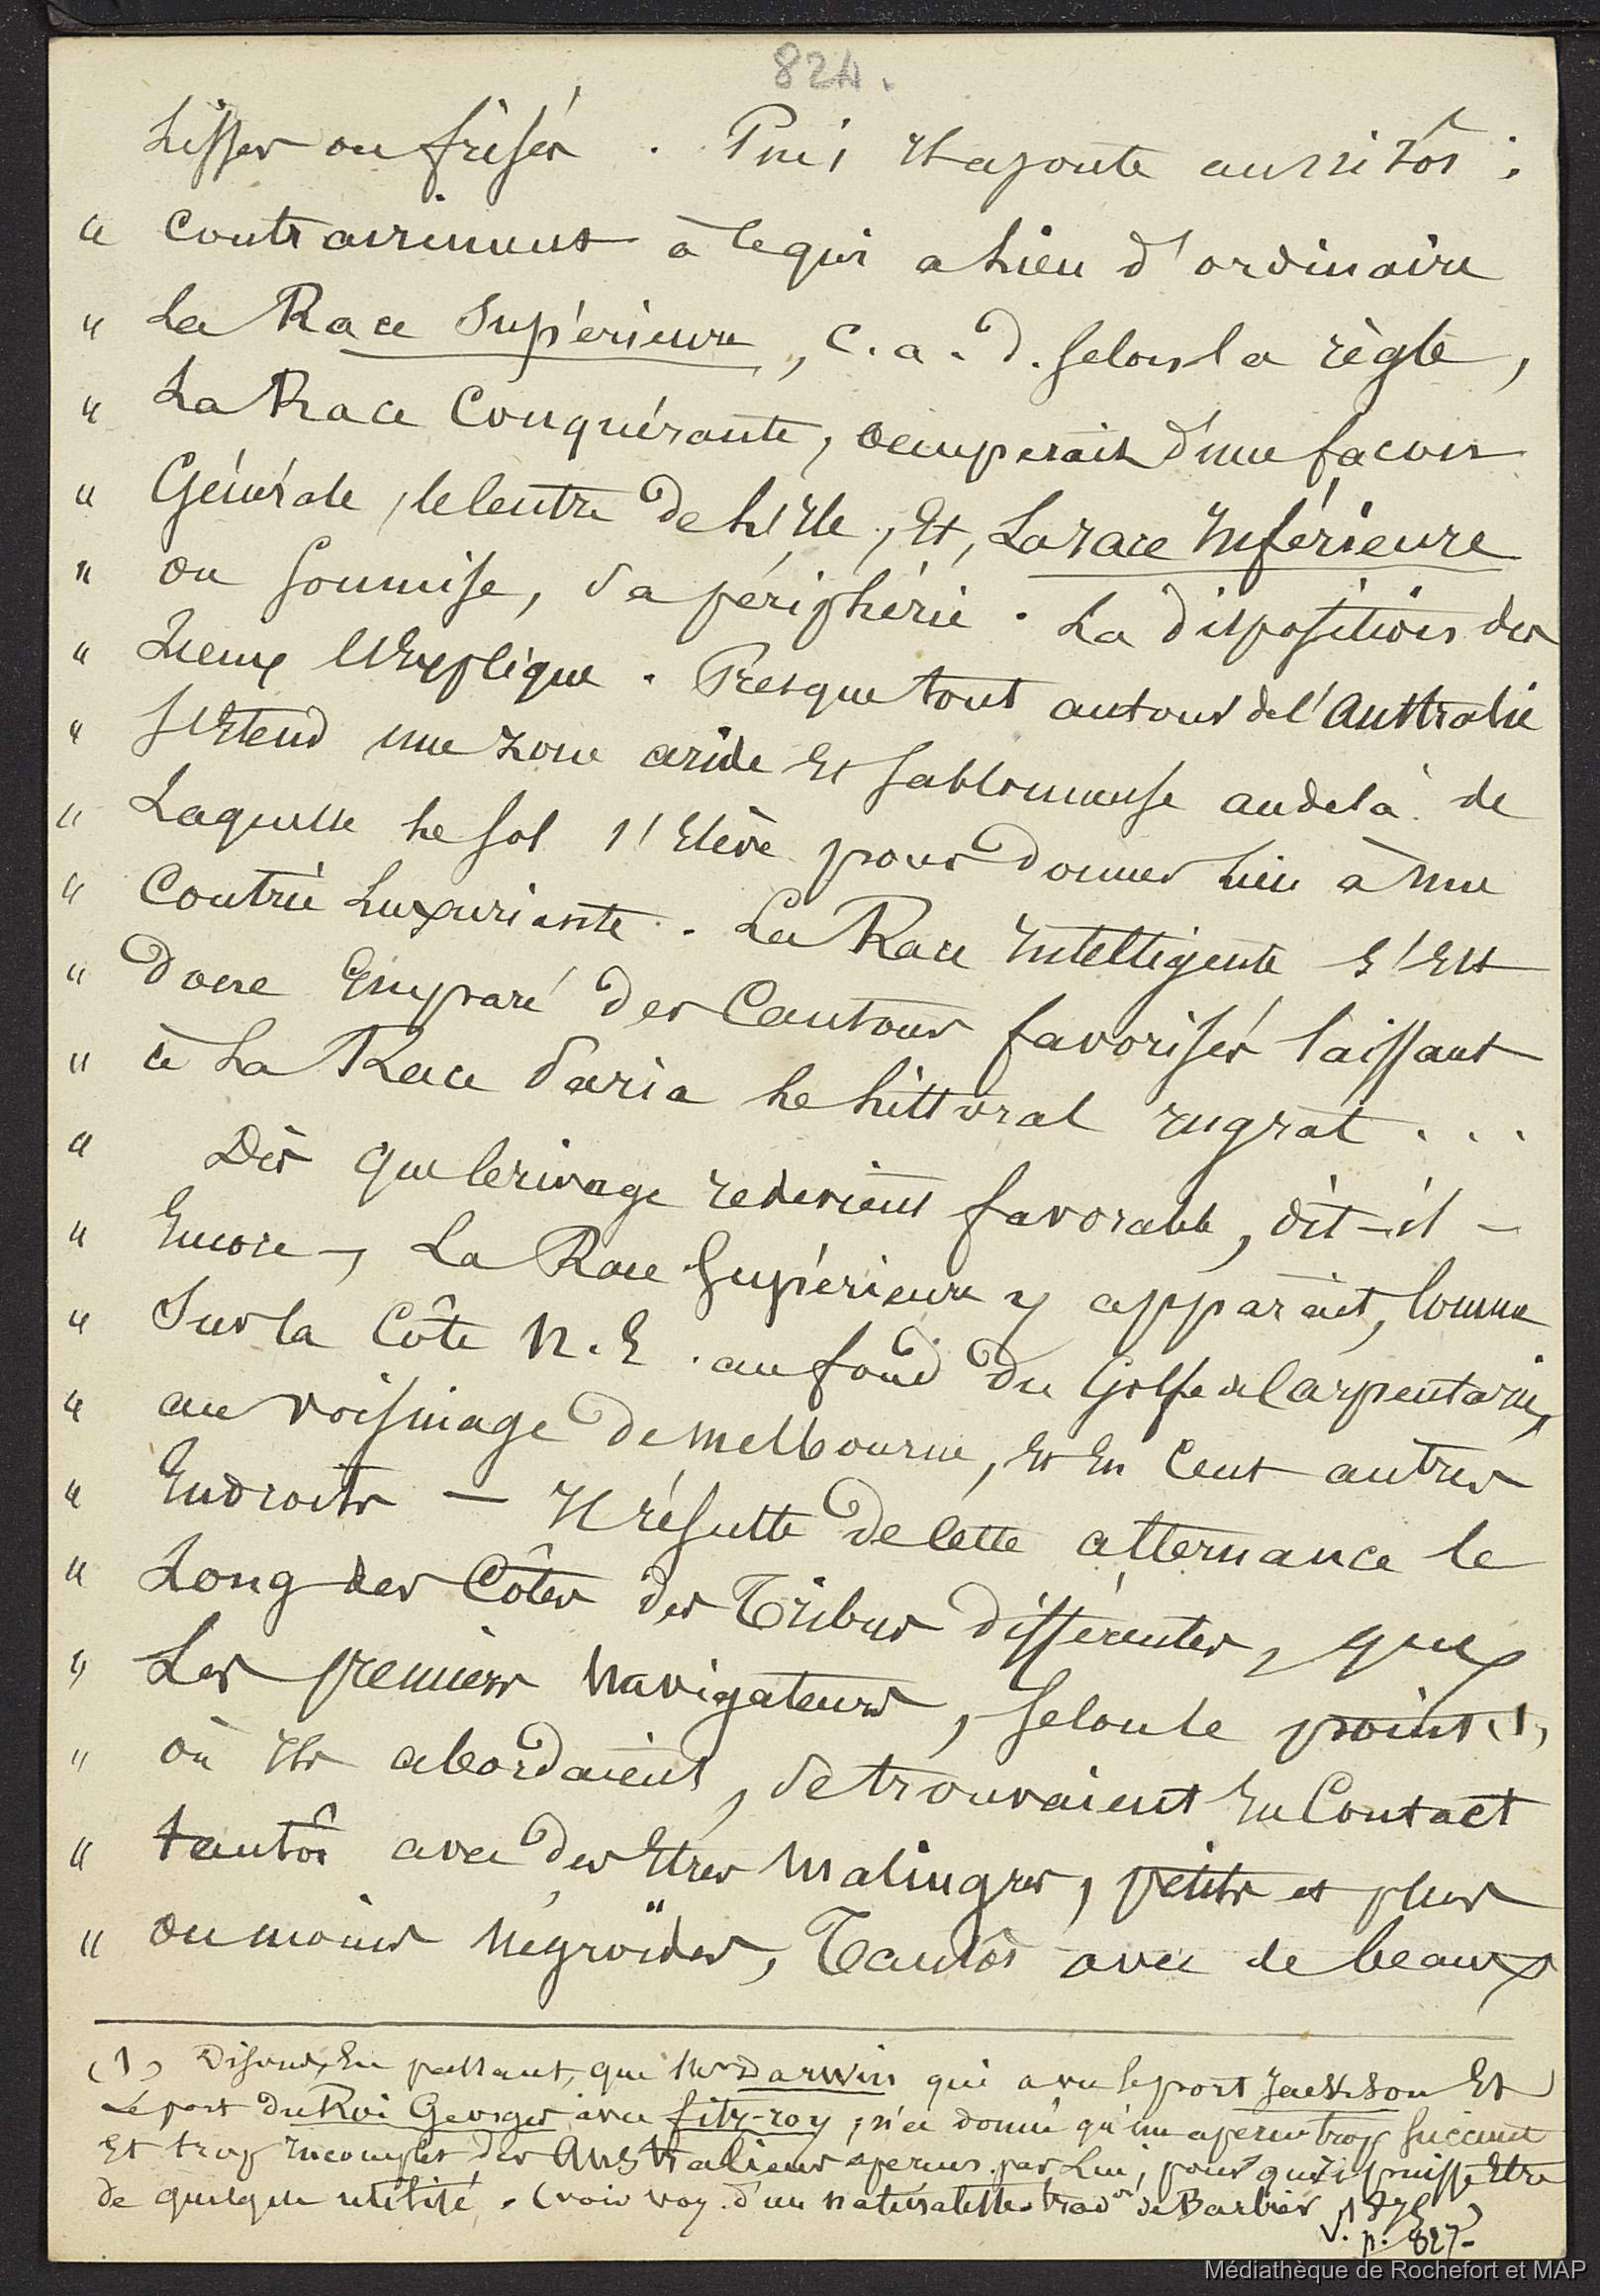 824.
Lisses ou frisés. Puis Il ajoute aussitôt :
" Contrairement à ce qui a Lieu d'ordinaire
" La Race Supérieure, c.a.d. selon la règle,
" La Race Conquérante, occuperait d'une facon
" Générale, le Centre de L'Ile, Et, La race Inférieure
" ou soumise, sa périphérie. La disposition des
" Lieux l'Explique. Presque tout autour de l'Australie
" s'Etend une zone aride Et sablonneuse au delà de
" Laquelle Le sol s'Elève pour donner Lieu à une
" Contrée Luxuriante. La Race Intelligente s'Est
" donc Emparé des Cantons favorisés laissant
" à La Race Paria Le Littoral ingrat . . .
" Dès que le rivage redevient favorable, dit-il -
" Encore -, La Race Supérieure y apparait, Comme
" Sur la Côte N.E. au fond du Golfe de Carpentarie,
" au voisinage de Melbourne, Et En Cent autres
" Endroits — Il résulte de Cette alternance le
" Long des Côtes des Tribus différentes, que
" Les premiers Navigateurs, selon le point (1)
" où Ils abordaient, se trouvaient En Contact
" tantôt avec des Etres Malingres, petits et plus
" ou moins Négroïdes, Tantôt avec de beaux
(1) Disons, En passant, que Mr Darwin qui a vu le port Jackson Et
Le port du Roi Georges avec fitz-roy, n'a donné qu'un apercu trop succinct
Et trop Incomplet des Australiens apercus par Lui, pour qu'il puisse Etre
de quelque utilité. (voir voy. d'un naturaliste. trad on de Barbier 1875)
V. p. 827-
Médiathèque de Rochefort et MAP